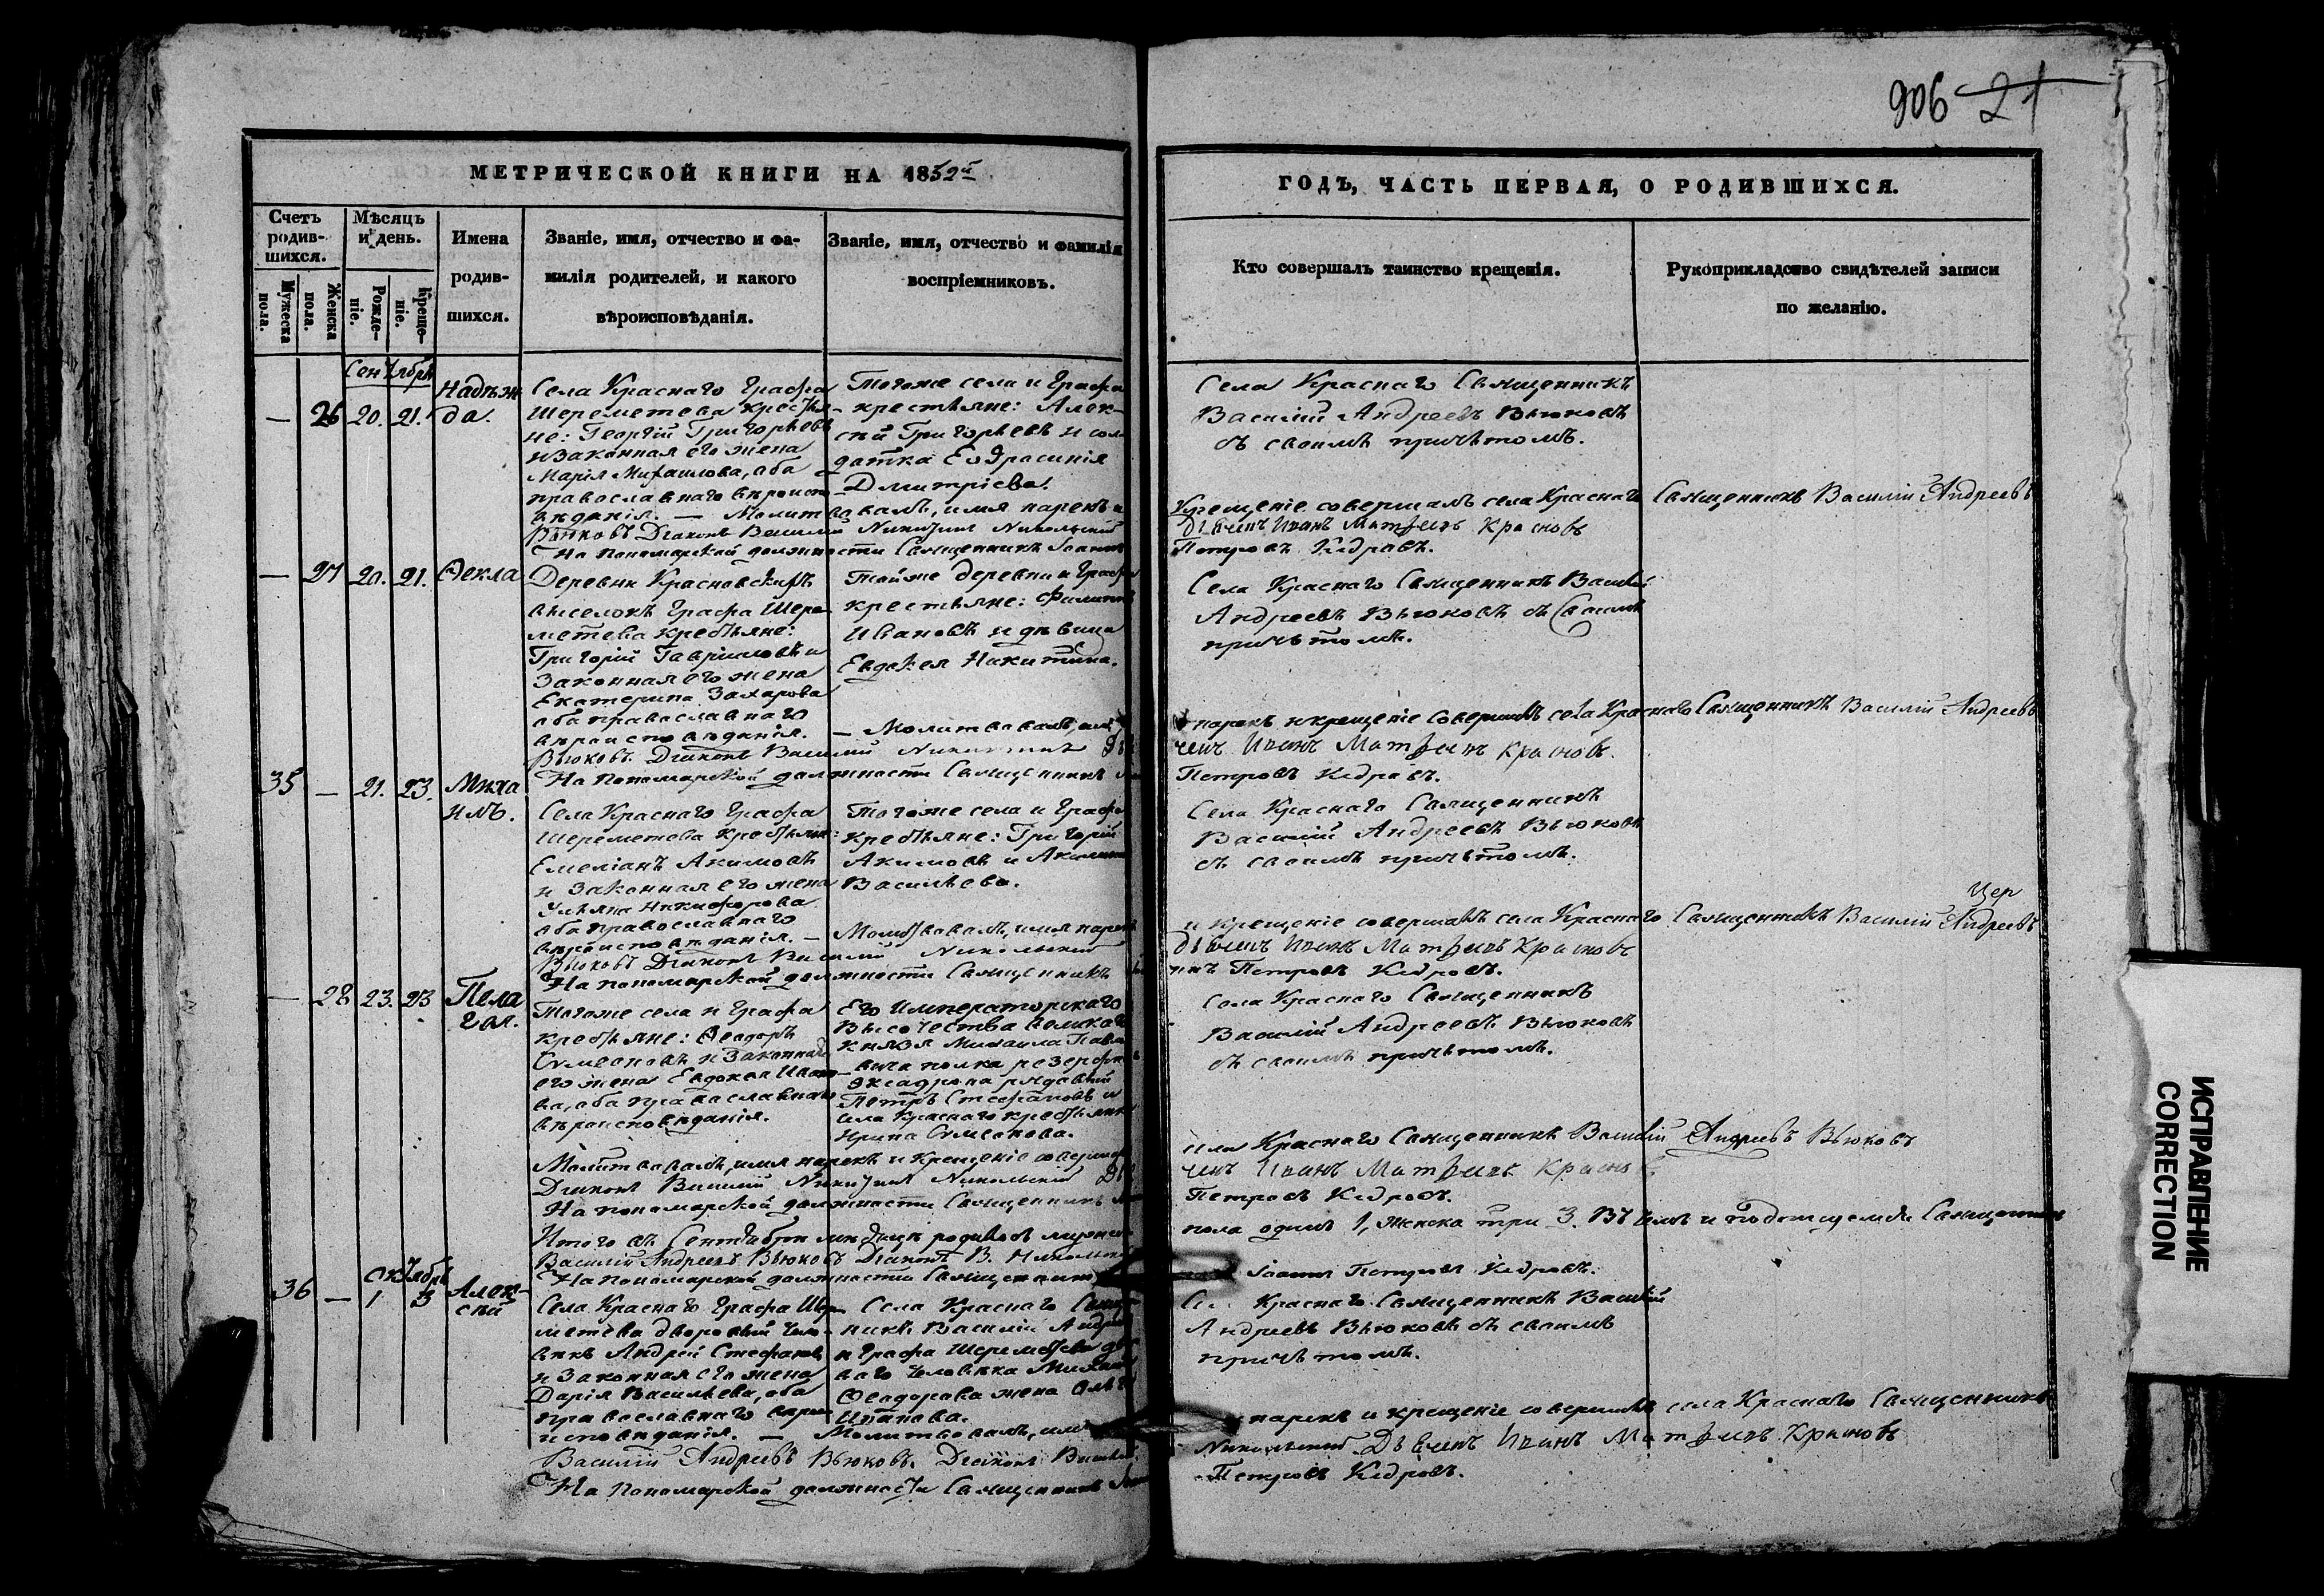 906 21
МЕТРИЧЕСКОЙ КНИГИ НА 1852й
ГОДЪ, ЧАСТЬ ПЕРВАЯ, О РОДИВШИХСЯ.
Счетъ родив-
шихся.
Мужеска пола.
Женска пола.
Мѣсяцъ
и день.
Рожде-
ніе.
Креще-
ніе.
Имена
родив-
шихся.
Званіе, имя, отчество и фа-
милія родителей, и какого
вѣроисповѣданія.
Званіе, имя, отчество и фамилія
воспріемниковъ.
Кто совершалъ таинство крещенія.
Рукоприкладство свидѣтелей записи
по желанію.
Сентябрь
— 26 20. 21. Надѣж
да.
Села Краснаго Графа
Шереметева крестья-
не: Георгій Григорьевъ
и законная его жена
Марія Михаилова, оба
православнаго вѣроиспо-
вѣданія. —
Тогоже села и Графа
крестьяне: Алек-
сѣй Григорьевъ и сол
датка Евдрасинія
Дмитріева.
Села Краснаго Священникъ
Василій Андреевъ Вьюковъ
съ своимъ причьтомъ.
Молитвовалъ, имя нарекъ и
Крещеніе совершалъ села Краснаго Священникъ Василій Андреевъ
Вьюковъ Діаконъ Василий Никитинъ Никольский
Дьячекъ Иванъ Матфиевъ Красновъ
На пономарской должности Священникъ Іоаннъ
Петровъ Кедровъ.
— 27 20. 21. Ѳекла
Деревни Красновскихъ
выселокъ Графа Шере
метева крестьяне:
Григорій Гавриловъ и
законная его жена
Екатерина Захарова
оба православнаго
вѣроисповѣданія.
Тойже деревни и Графа
крестьяне: Филиппъ
Ивановъ и дѣвица
Евдокея Никитина.
Села Краснаго Священникъ Василій
Андреевъ Вьюковъ съ своимъ
причьтомъ.
— Молитвовалъ, имя
нарекъ и крещеніе совершалъ села Краснаго Священникъ Василій Андреевъ
Вьюковъ. Діаконъ Василий Никитинъ
чекъ Иванъ Матфиевъ Красновъ.
На пономарской должности Священникъ
Петровъ Кедровъ.
35 — 21. 23. Миха
илъ.
Села Краснаго Графа
Шереметева крестьяне:
Емеліанъ Акимовъ
и законная его жена
Ульяна Никифорова
оба православнаго
вѣроисповѣданія. —
Тогоже села и Графа
крестьяне: Григорій
Акимовъ и Акилина
Васильева.
Села Краснаго Священникъ
Василій Андреевъ Вьюковъ
съ своимъ причьтомъ.
Молитвовалъ, имя нарекъ
и крещеніе совершалъ села Краснаго Священникъ Василій Андреевъ
Вьюковъ Діаконъ Василий Никольский
Дьячекъ Иванъ Матфиевъ Красновъ
На пономарской должности Священникъ
Петровъ Кедровъ.
— 28 23. 23 Пела
гея.
Тогоже села и Графа
крестьяне: Ѳеодоръ
Симеоновъ и законная
его жена Евдокея Ивано
ва, оба православнаго
вѣроисповѣданія.
Его Императорскаго
Высочества Великаго
Князя Михаила Павло
вича полка резервнаго
эскадрона рядовый
Петръ Стефановъ и
села Краснаго крестьянка
Ирина Симеонова.
Села Краснаго Священникъ
Василій Андреевъ Вьюковъ
съ своимъ причьтомъ.
Молитвовалъ, имя нарекъ и крещеніе совершалъ
села Краснаго Священникъ Василій Андреевъ Вьюковъ
Діаконъ Василий Никитинъ Никольский
чекъ Иванъ Матфиевъ Красновъ
На пономарской должности Священникъ
Петровъ Кедровъ.
Итого въ Сентябрѣ мѣсяцѣ родилось мужеска
пола одинъ 1, женска три 3. Въ чемъ и подписуемся Священникъ
Василій Андреевъ Вьюковъ Діаконъ В. Никольский
На пономарской должности Священникъ
Іоаннъ Петровъ Кедровъ.
Октябрь
36 — 1 3 Алек-
сѣй
Села Краснаго Графа Шере
метева дворовый чело-
вѣкъ Андрей Стефановъ
и законная его жена
Дарія Васильева, оба
православнаго вѣро
исповѣданія. —
Села Краснаго Священ
никъ Василій Андреевъ
и Графа Шереметева дворо
ваго человѣка Михаила
Ѳеодорова жена Ольга
Ипатова.
Краснаго Священникъ Василій
Андреевъ Вьюковъ съ своимъ
причьтомъ.
Молитвовалъ, имя
нарекъ и крещеніе совершалъ села Краснаго Священникъ
Василій Андреевъ Вьюковъ. Діаконъ Василий
Никольский Дьячекъ Иванъ Матфиевъ Красновъ
На пономарской должности Священникъ
Петровъ Кедровъ.
ИСПРАВЛЕНИЕ
CORRECTION